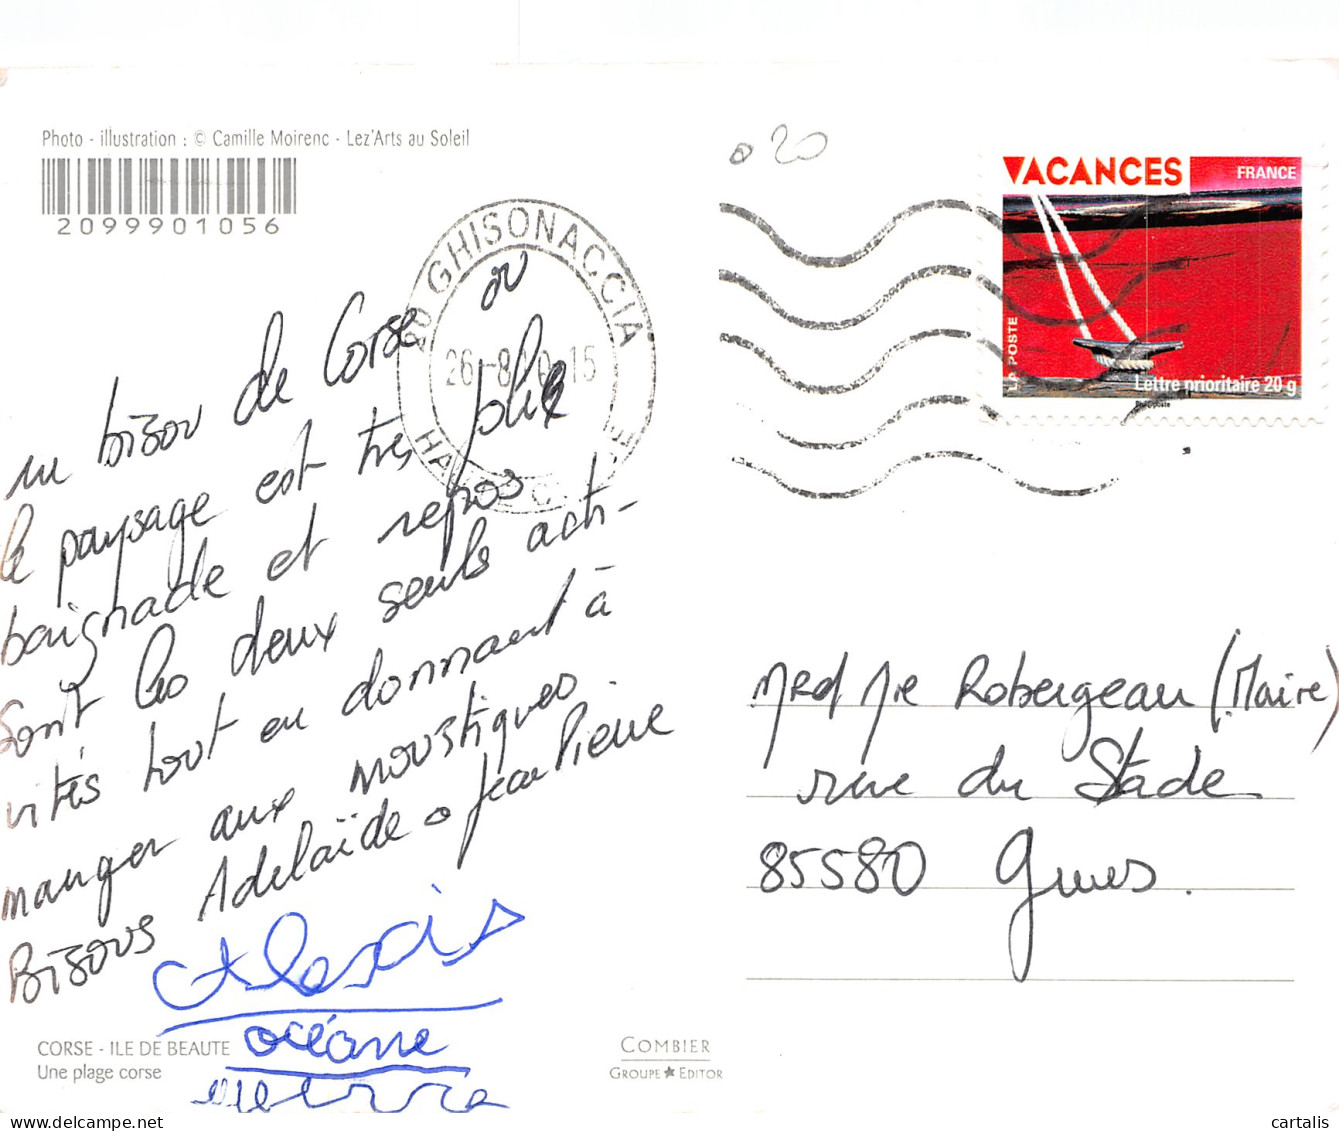 Photo - illustration : © Camille Moirenc - Lez'Arts au Soleil
2099901056
020
VACANCES
FRANCE
LA POSTE
Lettre prioritaire 20 g
Philaposte
20 GHISONACCIA
26-8 10 15
HAUTE C
un bisou de Corse où
le paysage est très jolie
baignade et repos
Sont les deux seuls acti-
vités tout en donnant à
manger aux moustiques.
Bisous Adelaïde Jean Pierre
Alexis
océane
Mr et Mme Robergeau (Maire)
rue du Stade
85580 Grues.
CORSE - ILE DE BEAUTE
Une plage corse
COMBIER
GROUPE ★ EDITOR
cartalis